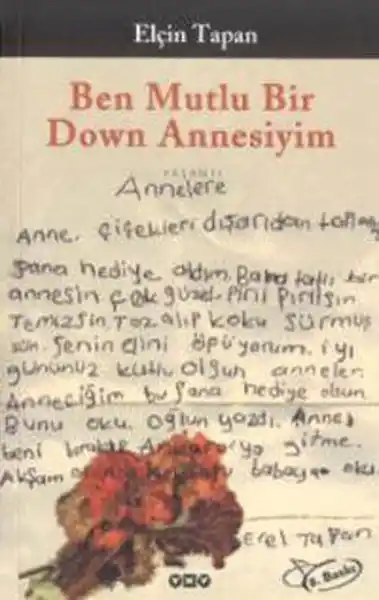 Elçin Tapan
Ben Mutlu Bir
Down Annesiyim
YAŞANTI
Annelere
Anne. çiçekleri dışarıdan
Sana hediye aldım. Bana tatlı bir
annesin çok güzel. Pırıl Pırılsın
Temizsin. Toz alıp koku sürmüş
sün. Senin elini öpüyorum. iyi
gününüz kutlu olsun anneler
Anneciğim bu sana hediye olsun
Bunu oku. oğlun yazdı. Anne
beni bırakıp Ankara'ya gitme.
Akşam babaya oku
Erel Tapan
YKY
8. Baskı